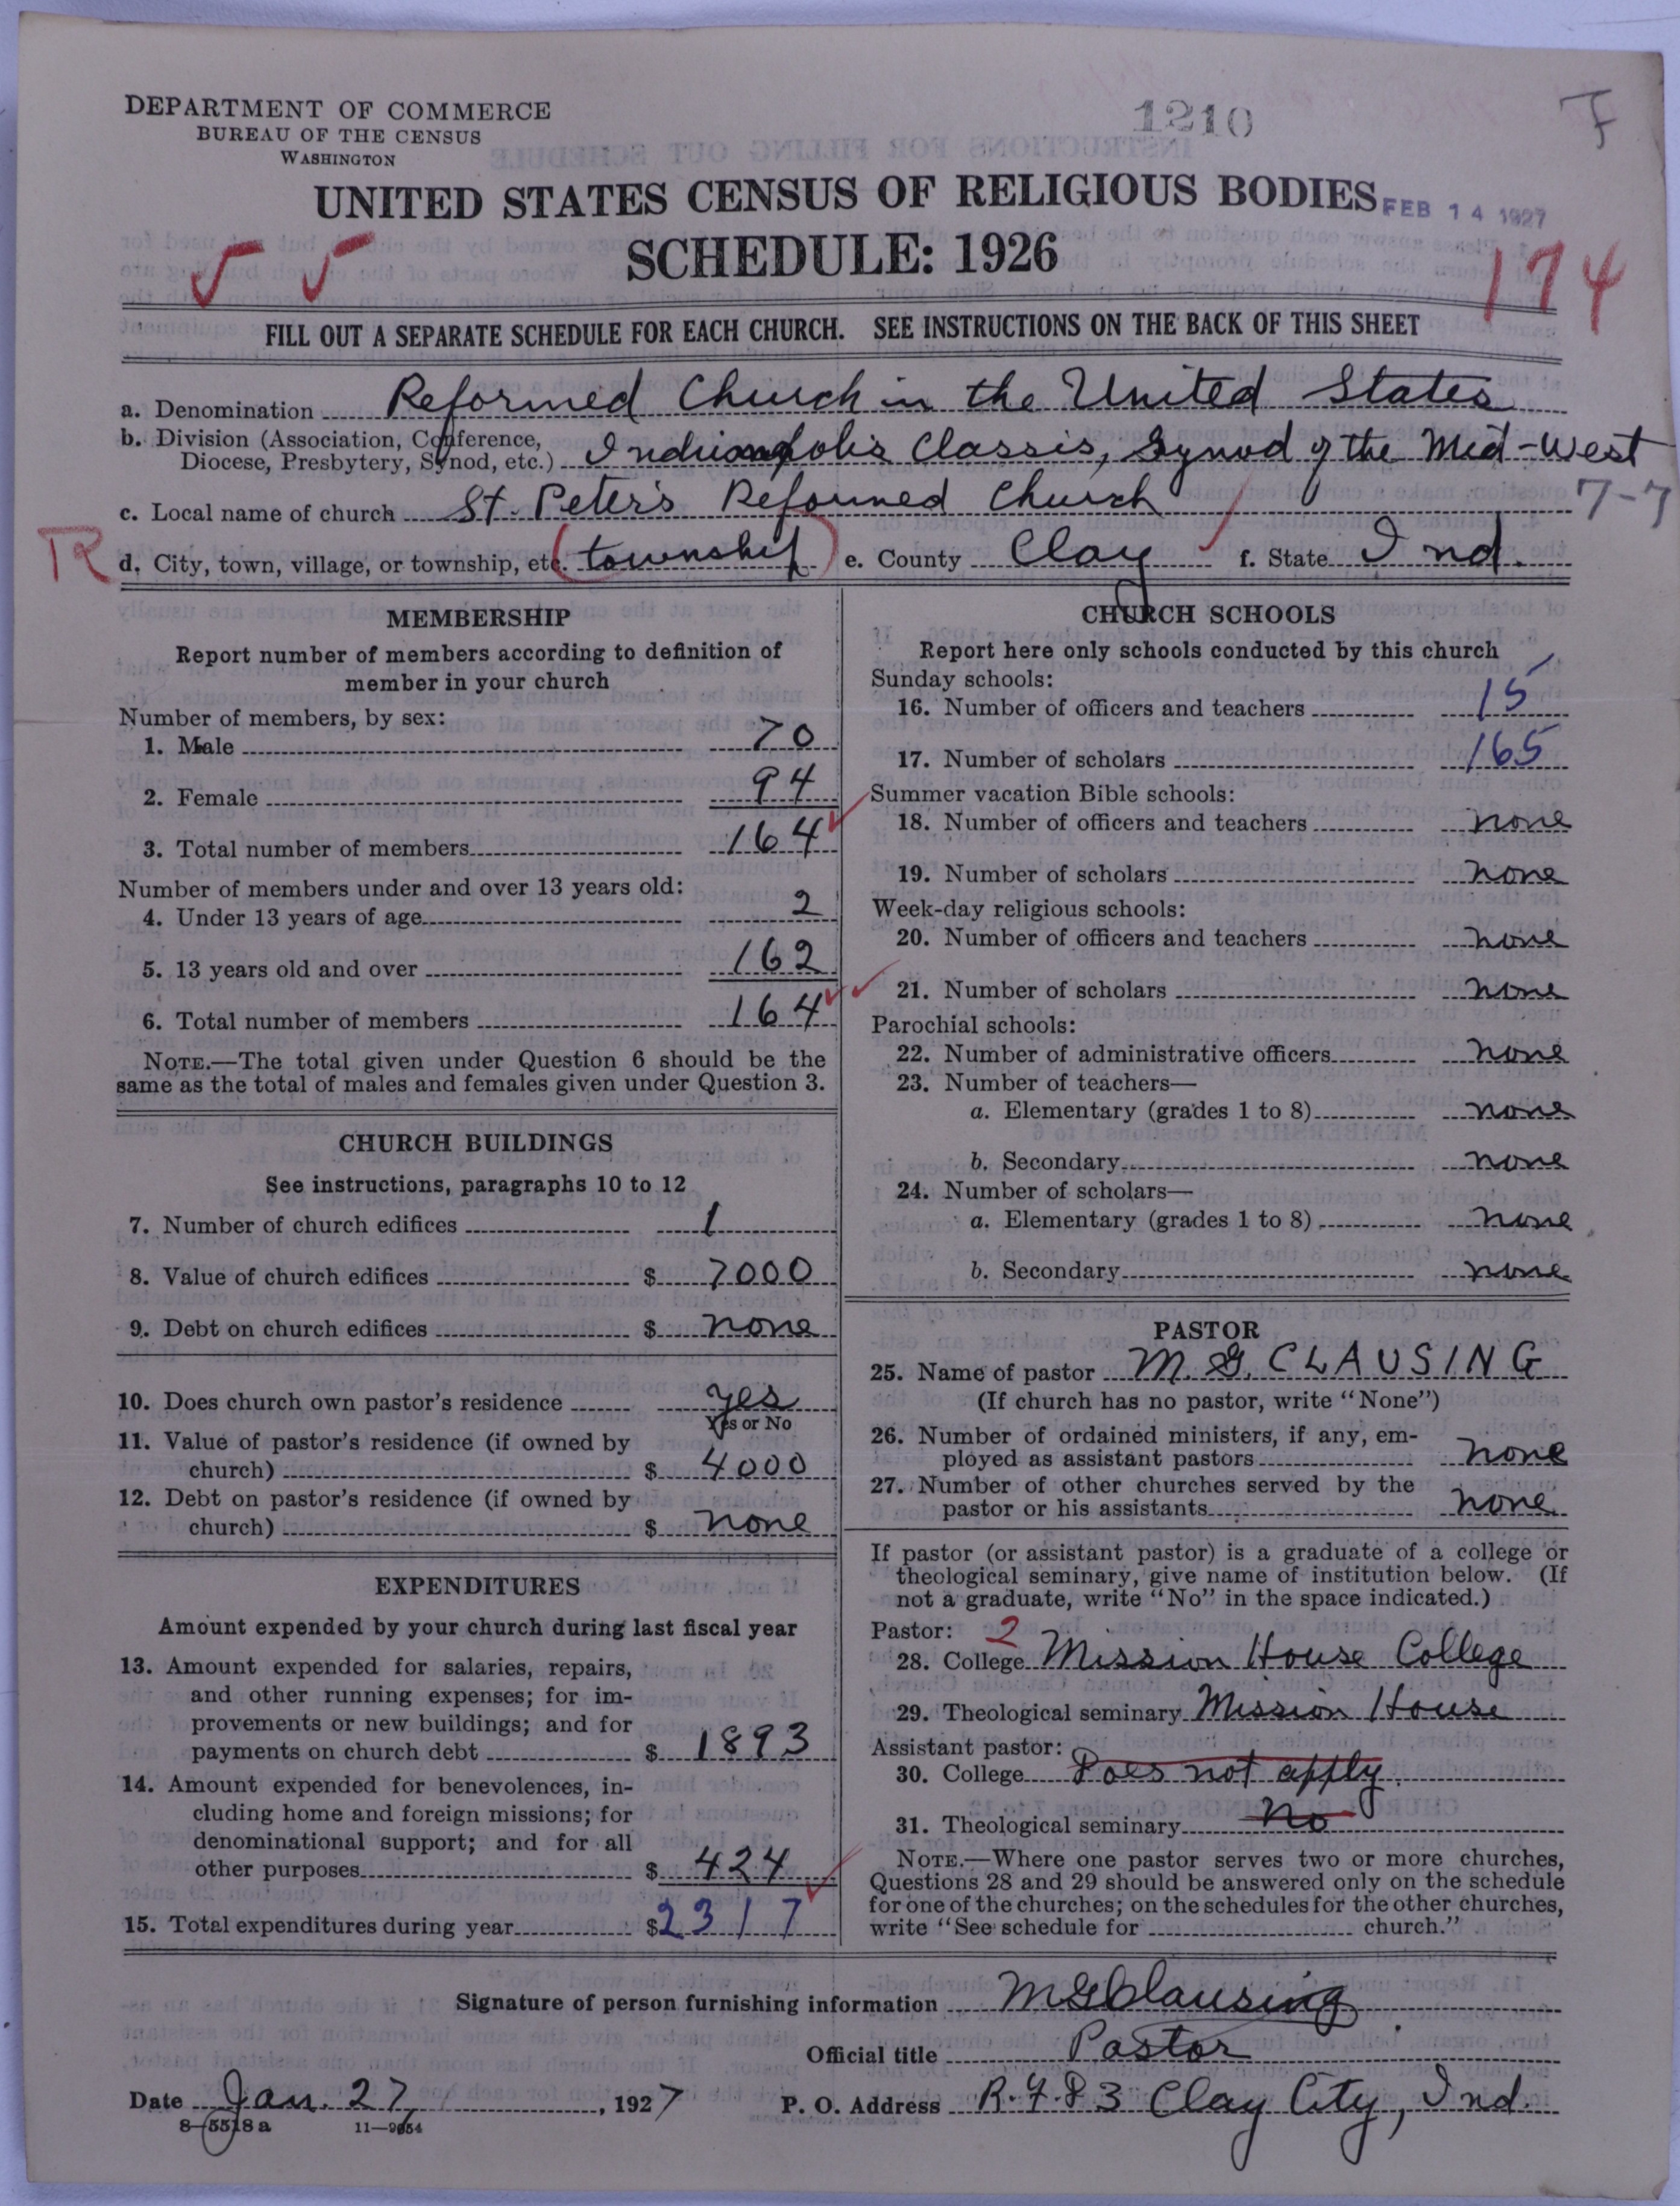 DEPARTMENT OF COMMERCE
BUREAU OF THE CENSUS
WASHINGTON
1210
F
UNITED STATES CENSUS OF RELIGIOUS BODIES
FEB 14 1927
SCHEDULE: 1926
174
FILL OUT A SEPARATE SCHEDULE FOR EACH CHURCH. SEE INSTRUCTIONS ON THE BACK OF THIS SHEET
a. Denomination Reformed Church in the United States
b. Division (Association, Conference,
Diocese, Presbytery, Synod, etc.) Indianapolis Classis, Synod of the Mid-West
c. Local name of church St. Peter's Reformed Church 7-7
R d. City, town, village, or township, etc. (township) e. County Clay f. State Ind.
MEMBERSHIP
Report number of members according to definition of
member in your church
Number of members, by sex:
1. Male 70
2. Female 94
3. Total number of members 164
Number of members under and over 13 years old:
4. Under 13 years of age 2
5. 13 years old and over 162
6. Total number of members 164
NOTE.—The total given under Question 6 should be the
same as the total of males and females given under Question 3.
CHURCH BUILDINGS
See instructions, paragraphs 10 to 12
7. Number of church edifices 1
8. Value of church edifices $ 7000
9. Debt on church edifices $ none
10. Does church own pastor's residence yes
Yes or No
11. Value of pastor's residence (if owned by
church) $ 4000
12. Debt on pastor's residence (if owned by
church) $ none
EXPENDITURES
Amount expended by your church during last fiscal year
13. Amount expended for salaries, repairs,
and other running expenses; for im-
provements or new buildings; and for
payments on church debt $ 1893
14. Amount expended for benevolences, in-
cluding home and foreign missions; for
denominational support; and for all
other purposes $ 424
15. Total expenditures during year $ 2317
CHURCH SCHOOLS
Report here only schools conducted by this church
Sunday schools:
16. Number of officers and teachers 15
17. Number of scholars 165
Summer vacation Bible schools:
18. Number of officers and teachers none
19. Number of scholars none
Week-day religious schools:
20. Number of officers and teachers none
21. Number of scholars none
Parochial schools:
22. Number of administrative officers none
23. Number of teachers—
a. Elementary (grades 1 to 8) none
b. Secondary none
24. Number of scholars—
a. Elementary (grades 1 to 8) none
b. Secondary none
PASTOR
25. Name of pastor M. G. CLAUSING
(If church has no pastor, write "None")
26. Number of ordained ministers, if any, em-
ployed as assistant pastors none
27. Number of other churches served by the
pastor or his assistants none
If pastor (or assistant pastor) is a graduate of a college or
theological seminary, give name of institution below. (If
not a graduate, write "No" in the space indicated.)
Pastor: 2
28. College Mission House College
29. Theological seminary Mission House
Assistant pastor:
30. College Does not apply
31. Theological seminary No
NOTE.—Where one pastor serves two or more churches,
Questions 28 and 29 should be answered only on the schedule
for one of the churches; on the schedules for the other churches,
write "See schedule for church."
Signature of person furnishing information M G Clausing
Official title Pastor
Date Jan. 27, 1927 P. O. Address R.F.D 3 Clay City, Ind.
8-5518 a 11-9054